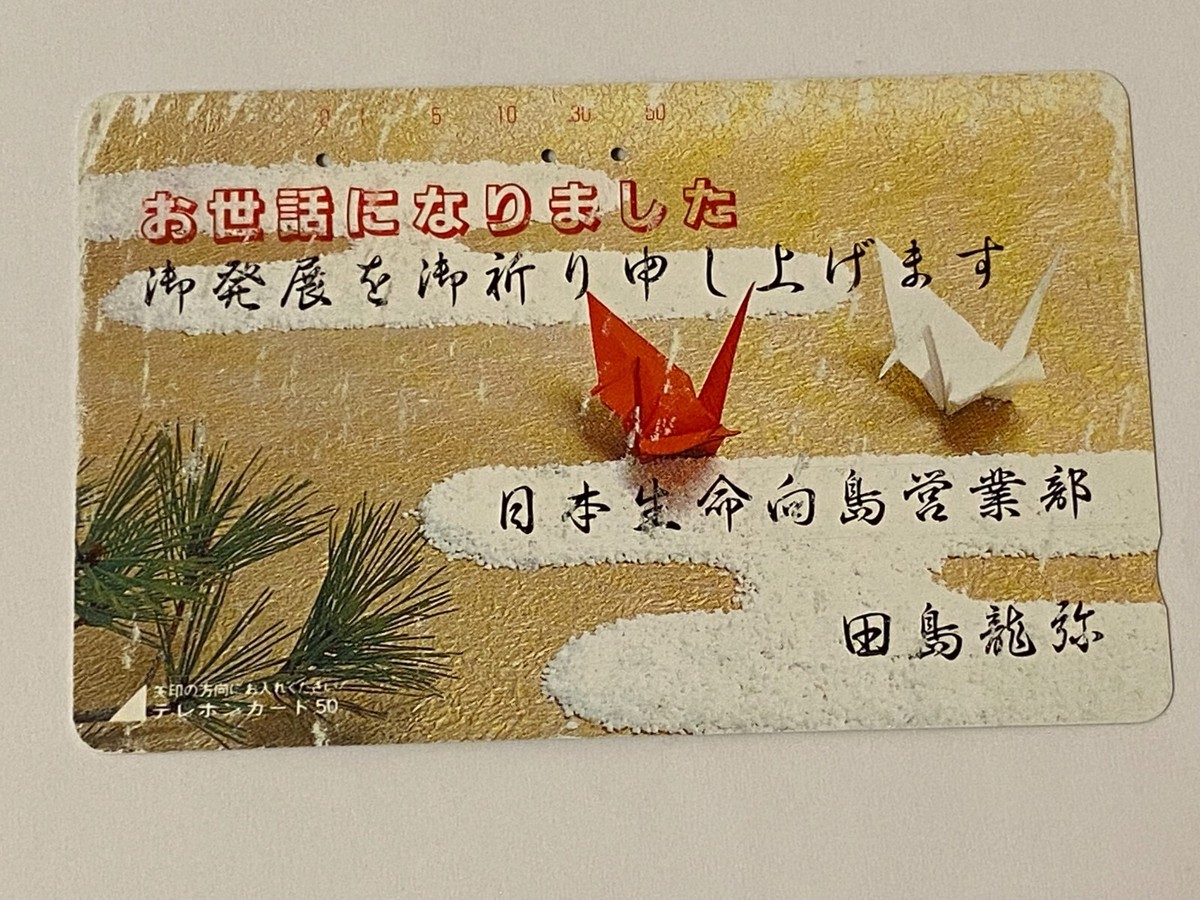 0 1 5 10 30 50
お世話になりました
御発展を御祈り申し上げます
日本生命向島営業部
田島龍弥
矢印の方向にお入れください
テレホンカード50